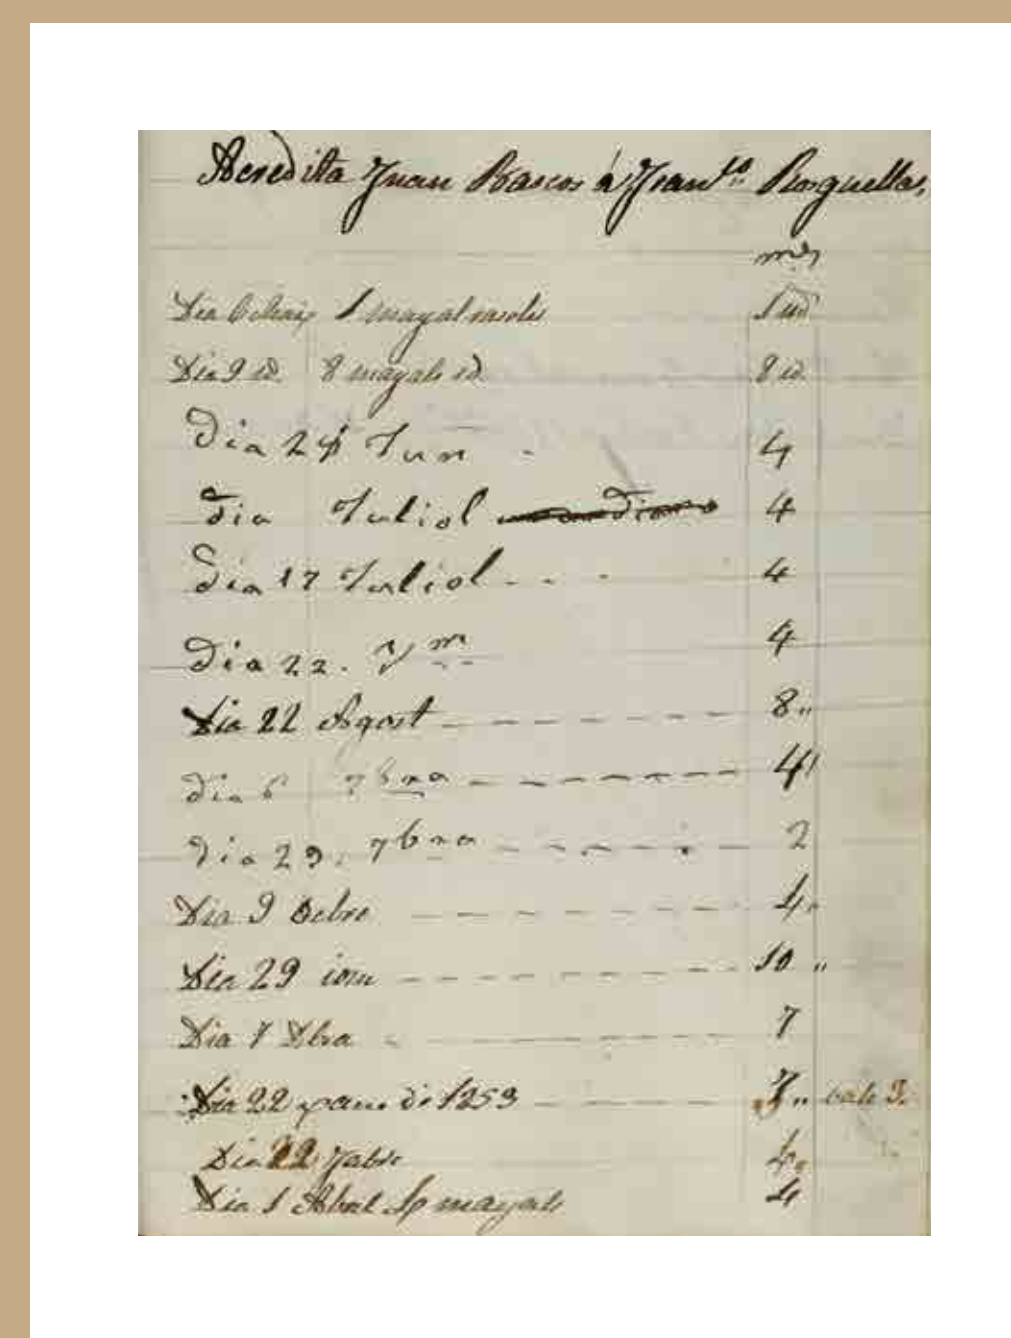 Acredita Juan Bascos á Fran.co Rosquellas,
m.s
Dia 6 Maig 1 mayal 1 id
Dia 9 id. 8 mayals id. 8 id.
Dia 24 Jun - 4
Dia Juliol 4
Dia 17 Juliol - - - 4
Dia 22. ym 4
Dia 22 Agost - - - - - - 8 "
Dia 6 7bra - - - - - - 4
Dia 29. 7bra - - - - - - 2
Dia 9 8cbre - - - - - - 4
Dia 29 iom - - - - - - 10 "
Dia 1 Xbra - - - - - - 7
Dia 22 de 1853 - - - - 3 " vale 3.
Dia 22 Fabre 4
Dia 1 Abril 4 mayals 4